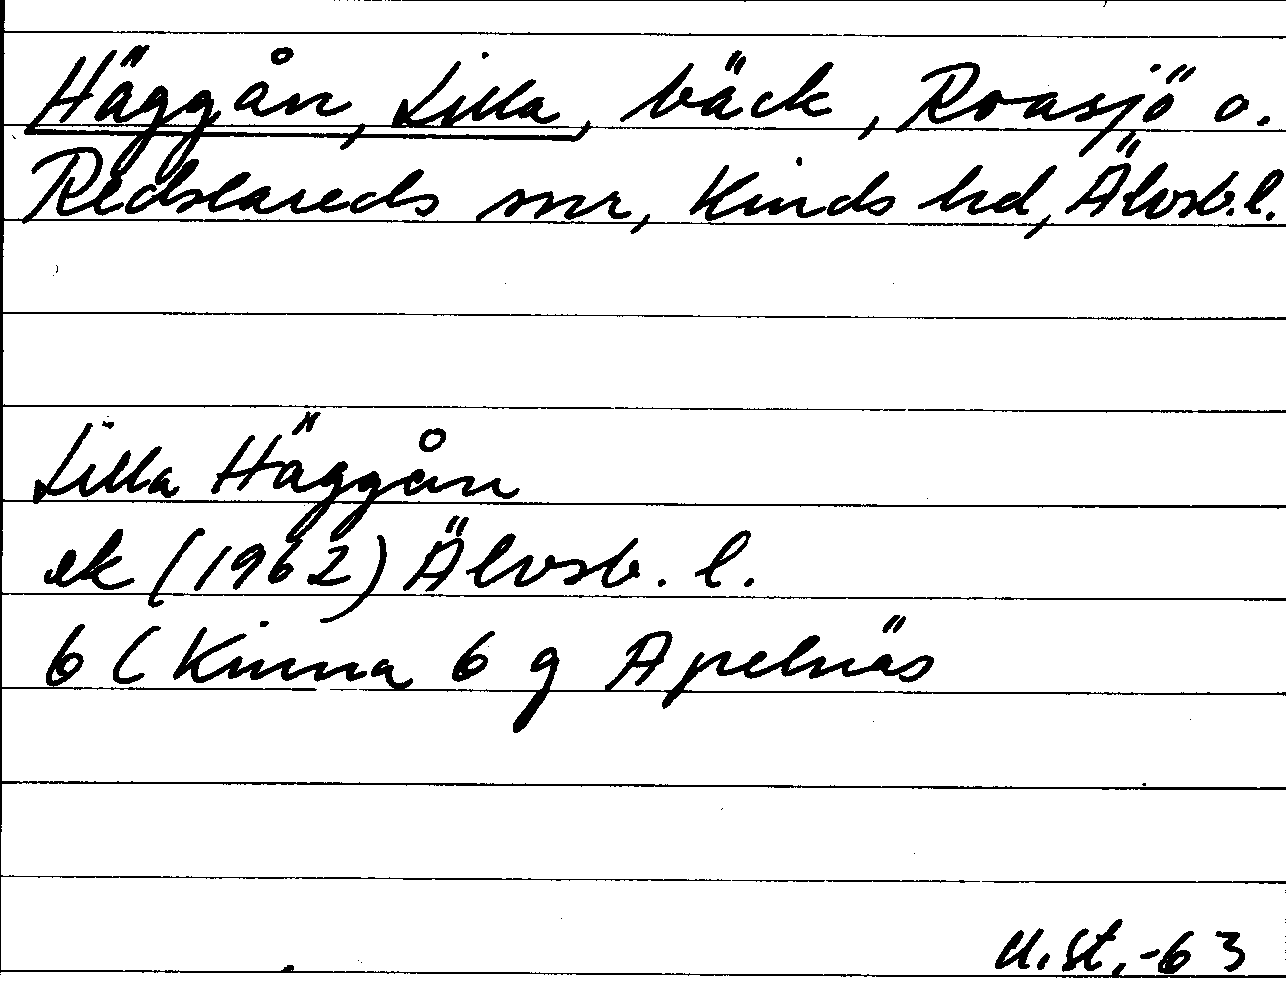 Häggån, Lilla, bäck, Roasjö o.
Redslareds snr, Kinds hd, Älvsb.l.
Lilla Häggån
ek (1962) Älvsb. l.
6 C Kinna 6 g Apelnäs
U.St.,-63